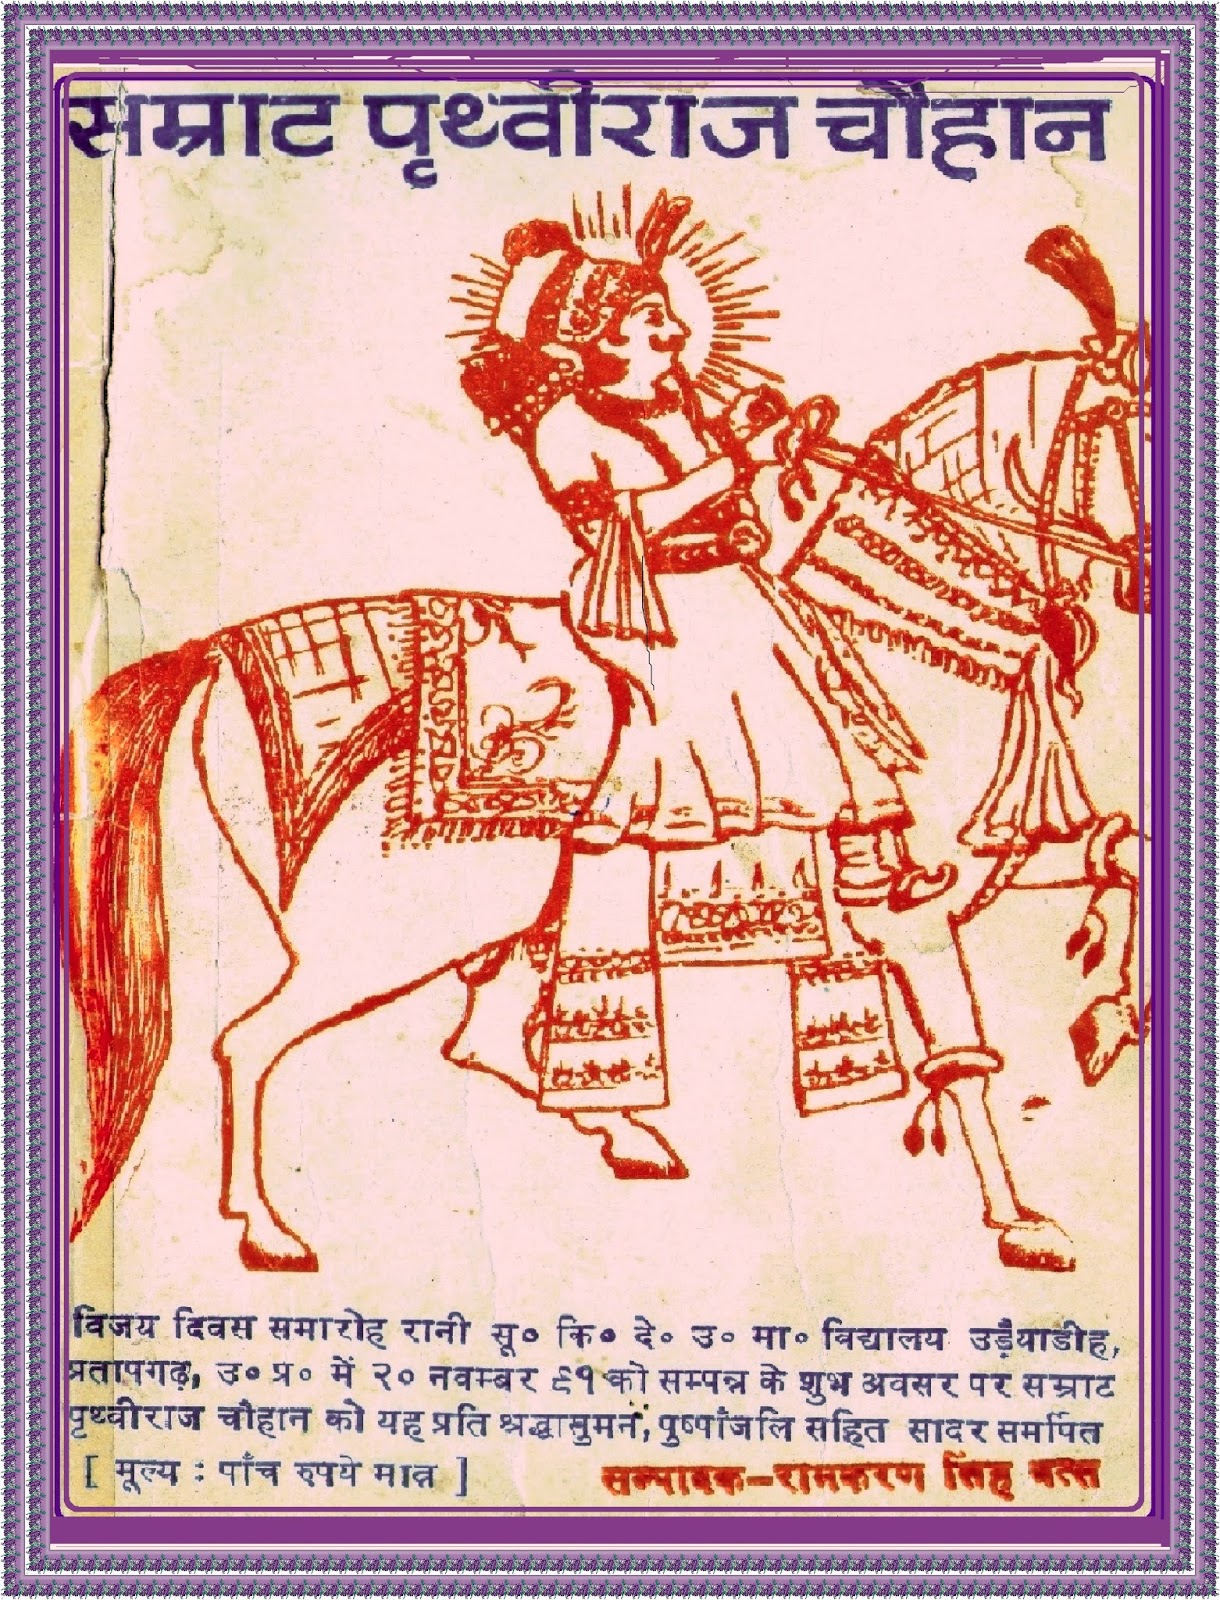 सम्राट पृथ्वीराज चौहान
विजय दिवस समारोह रानी सू० कि० दे० उ० मा० विद्यालय उड़ैयाडीह,
प्रतापगढ़, उ० प्र० में २० नवम्बर ९१ को सम्पन्न के शुभ अवसर पर सम्राट
पृथ्वीराज चौहान को यह प्रति श्रद्धासुमन, पुष्पाँजलि सहित सादर समर्पित
[ मूल्य : पाँच रुपये मात्र ]
सम्पादक–रामकरण सिंह